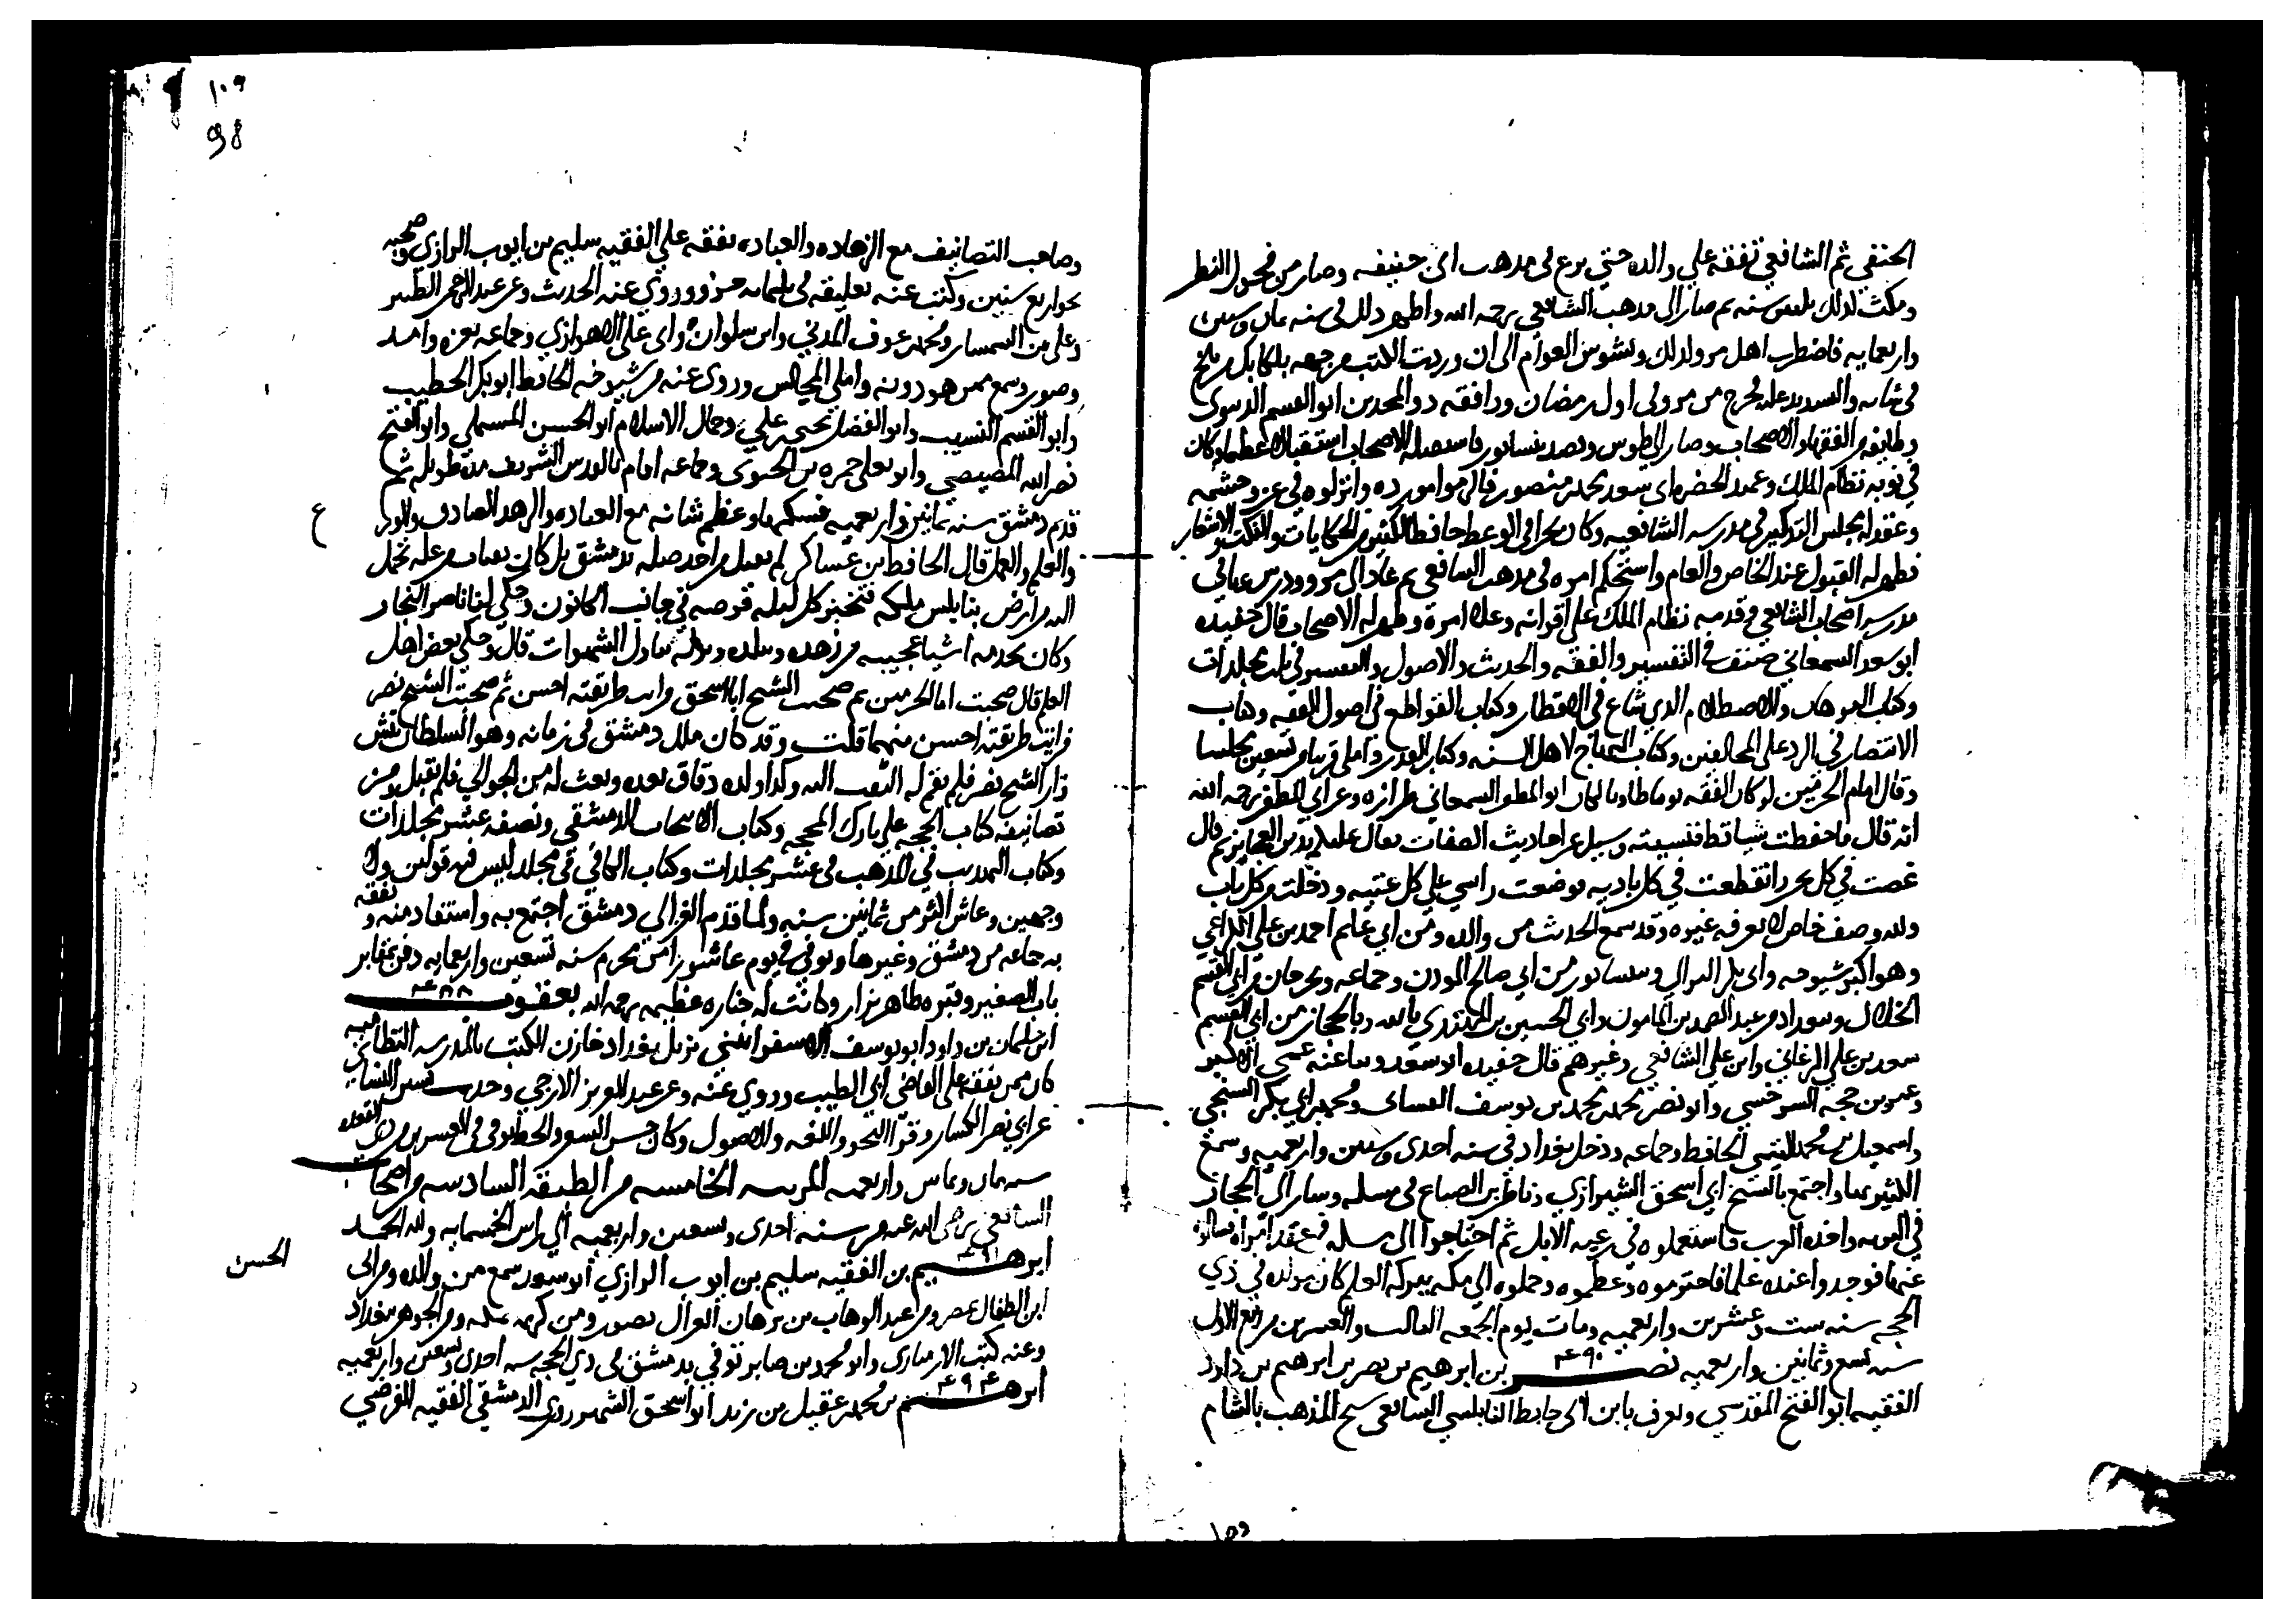 الحنفي ثم الشافعي تفقه علي والده حتي برع في مدهب ابي حنيفه وصار من فحول النظر
ومكث لدلك ثلثين سنه ثم صار الي مدهب الشافعي رحمه الله واظهر دلك في سنه ثمان وستين
واربعمايه فاضطرب اهل مرو لدلك وتشوش العوام الي ان وردت الكتب من جهه بلكابك من بلخ
في شانه والتشديد عليه فخرج من مرو في اول رمضان ورافقه دو المجدين ابو القسم الموسوي
وطايفه من الفقها والاصحاب وصار الي طوس وقصد نيسابور فاستقبله الاصحاب استقبالا عظيما وكان
في نوبه نظام الملك وعميد الحضره ابي سعد محمد بن منصور فاكرموا مورده وانزلوه في عز وحشمه
وعقد له مجلس التدكير في مدرسه الشافعيه وكان بحرا في الوعظ حافظا لكثير من الحكايات والنكت والاشعار
فظهر له القبول عند الخاص والعام واستحكم امره في مدهب الشافعي ثم عاد الي مرو ودرس بها في
مدرسه اصحاب الشافعي وقدمه نظام الملك علي اقرانه وعلا امره وظهر له الاصحاب قال حفيده
ابو سعد السمعاني صنف في التفسير والفقه والحديث والاصول والتفسير في ثلث مجلدات
وكتاب البرهان والاصطلام الدي شاع في الاقطار وكتاب القواطع في اصول الفقه وكتاب
الانتصار في الرد علي المخالفين وكتاب المنهاج لاهل السنه وكتاب القدر واملي قريبا من تسعين مجلسا
وقال امام الحرمين لو كان الفقه ثوبا طاويا لكان ابو المظفر السمعاني طرازه وعن ابي المظفر رحمه الله
انه قال ما حفظت شيا قط فنسيته وسيل عن احاديث الصفات فقال عليكم بدين العجايز ثم قال
غصت في كل بحر وانقطعت في كل باديه ووضعت راسي علي كل عتبه ودخلت من كل باب
وقد سمع الحديث من والده ومن ابي غانم احمد بن علي الكراعي
وهو اكبر شيوخه وابي بكر الترابي وبنيسابور من ابي صالح المودن وجماعه وبجرجان من ابي القسم
الخلال وببغداد من عبد الصمد بن المامون وابي الحسين بن المهتدي بالله وبالحجاز من ابي القسم
سعد بن علي الزنجاني وابي علي الشافعي وغيرهم قال حفيده ابو سعد وثنا عنه عمي الاكبر
وعمر بن محمد السرخسي وابو نصر محمد بن محمد بن يوسف الفاشاني ومحمد بن ابي بكر السنجي
واسمعيل بن محمد التيمي الحافظ وجماعه ودخل بغداد في سنه احدي وستين واربعميه وسمع
الكثير بها واجتمع بالشيخ ابي اسحق الشيرازي وناظر ابن الصباغ في مسله وسار الي الحجاز
في البريه واخده العرب فاستعملوه في رعيه الابل ثم احتاجوا الي مسله في عقد امراه فسالوا
عنها فوجدوا عنده علما فاحترموه وعظموه وحملوه الي مكه ببركه العلم كان مولده في ذي
الحجه سنه ست وعشرين واربعميه ومات يوم الجمعه الثالث والعشرين من ربيع الاول
سنه تسع وثمانين واربعميه نصر ٤٩٠ بن ابرهيم بن نصر بن ابرهيم بن داود
الفقيه ابو الفتح المقدسي ويعرف بابن ابي حايط النابلسي الشافعي شيخ المذهب بالشام
١٠٩
98
وصاحب التصانيف مع الزهاده والعباده تفقه علي الفقيه سليم بن ايوب الرازي وصحبه
نحو اربع سنين وكتب عنه تعليقه في ثلثمايه جزو وروي عنه الحديث وعن عبد الرحمن الطبيز
وعلي بن السمسار ومحمد بن عوف المدني وابن سلوان وابي علي الاهوازي وجماعه بغزه وامد
وصور وسمع ممن هو دونه واملي المجالس وروي عنه من شيوخه الحافظ ابو بكر الخطيب
وابو القسم النسيب وابو الفضل يحيي بن علي وجمال الاسلام ابو الحسن المسملي وابو الفتح
نصر الله المصيصي وابو يعلي حمزه بن الحبوبي وجماعه اقام بالقدس الشريف مده طويله ثم
قدم دمشق سنه ثمانين واربعميه فسكنها وعظم شانه مع العباده والزهد الصادق والورع
ع
والعلم والعمل قال الحافظ بن عساكر لم يقبل من احد صله بدمشق بل كان يقتات من غله تحمل
اليه من ارض بنابلس ملكه فيخبز كل ليله قرصه في جانب الكانون وحكي لنا ناصر النجار
وكان يخدمه اشيا عجيبه من زهده وتقلله وتركه تناول الشهوات قال وحكي بعض اهل
العلم قال صحبت امام الحرمين ثم صحبت الشيخ ابا اسحق فرايت طريقته احسن ثم صحبت الشيخ نصر
فرايت طريقته احسن منهما قلت وقد كان ملك دمشق في زمانه وهو السلطان تتش
زار الشيخ نصر فلم يقم له ولا التفت اليه وكدا ولده دقاق بعده وبعث له من الجوالي فلم يقبل ومن
تصانيفه كتاب الحجه علي تارك المحجه وكتاب الانتخاب الدمشقي ونصفه عشر مجلدات
وكتاب التهذيب في المذهب في عشر مجلدات وكتاب الكافي في مجلد ليس فيه قولين ولا
وجهين وعاش اكثر من ثمانين سنه ولما قدم الغزالي دمشق اجتمع به واستفاد منه وتفقه
به جماعه من دمشق وغيرها وتوفي في يوم عاشورا من محرم سنه تسعين واربعمايه ودفن بمقابر
باب الصغير وقبره ظاهر يزار وكانت له جنازه عظيمه رحمه الله يعقوب ٤٨٨
ابن سليمان بن داود ابو يوسف الاسفرايني نزيل بغداد خازن الكتب بالمدرسه النظاميه
كان ممن تفقه علي القاضي ابي الطيب وروي عنه وعن عبد العزيز الازجي وحدث بسنن النساي
عن ابي نصر الكسار وقرا النحو واللغه والاصول وكان حسن الشعر والخط توفي في العشرين من ذي القعده
سنه ثمان وثمانين واربعميه المرتبه الخامسه من الطبقه السادسه من اصحاب
الشافعي رضي الله عنه من سنه احدي وتسعين واربعميه الي راس الخمسمايه ولله الحمد
ابرهيم ٤٩١ بن الفقيه سليم بن ايوب الرازي ابو سعد سمع من والده ومن ابي
الحسن
ابن الطفال بمصر ومن عبد الوهاب بن برهان الغزال بصور ومن كريمه بمكه ومن الجوهري ببغداد
وعنه كتب الارمنازي وابو محمد بن صابر توفي بدمشق في ذي الحجه سنه احدي وتسعين واربعميه
ابرهيم ٤٩٤ بن محمد بن عقيل بن زيد ابو اسحق الشهرزوري الدمشقي الفقيه الفرضي
١٠٩